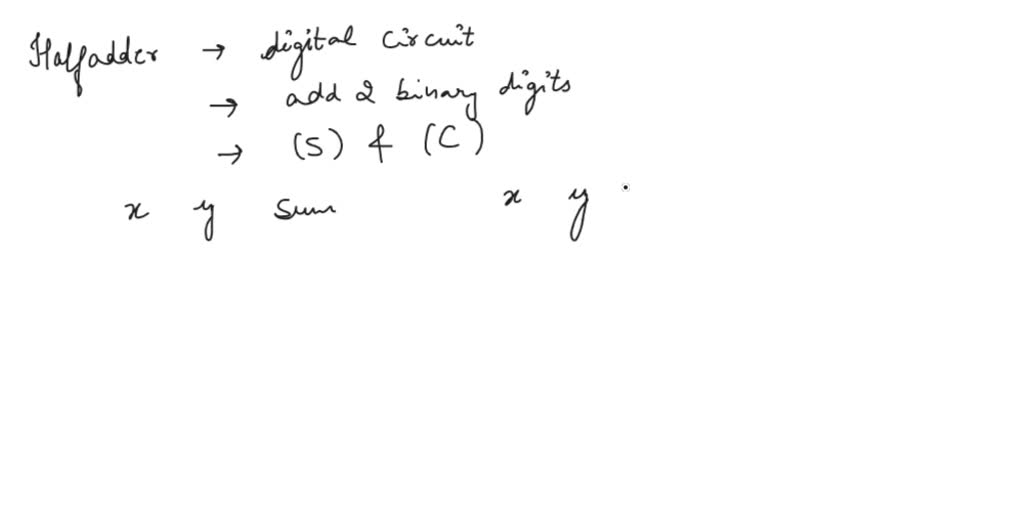 Halfadder → digital circuit
→ add 2 binary digits
→ (S) & (C)
x y Sum x y